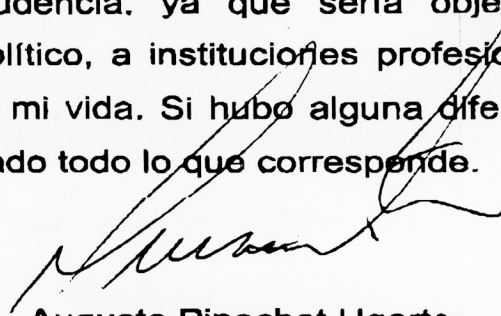 udencia, ya que sería obje
olítico, a instituciones profesio
mi vida. Si hubo alguna dife
ado todo lo que corresponde.
Augusto Pinochet Ugarte